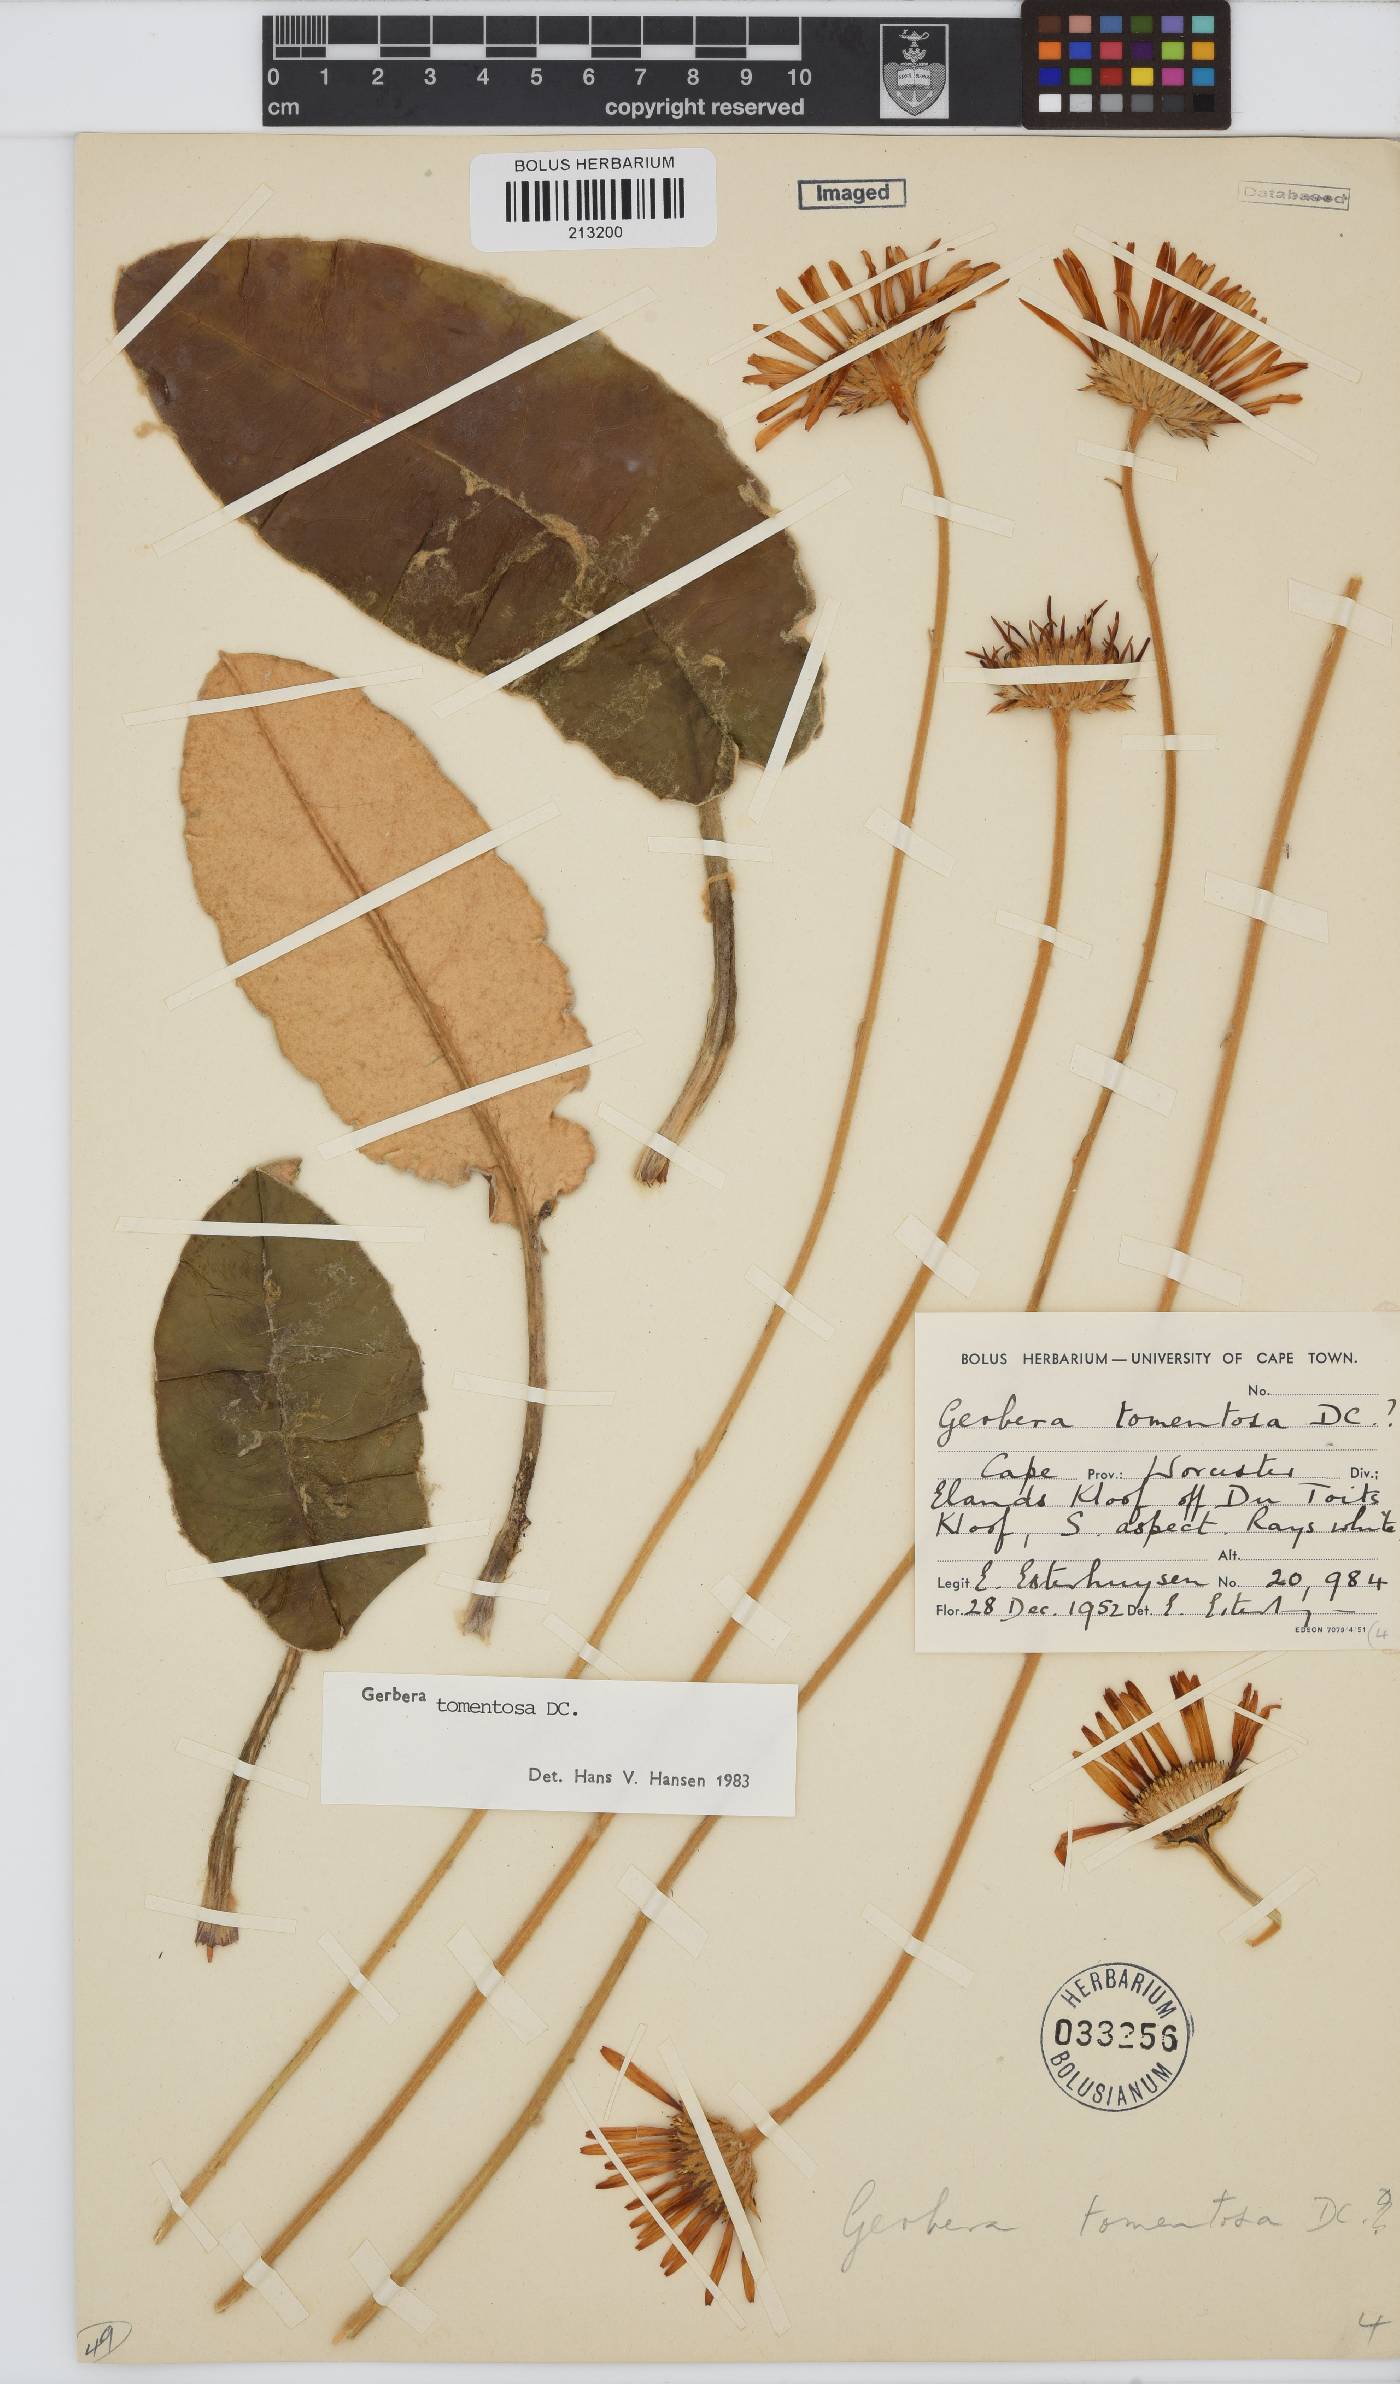 0 1 2 3 4 5 6 7 8 9 10
cm copyright reserved
BOLUS HERBARIUM
213200
Imaged
Databased
BOLUS HERBARIUM—UNIVERSITY OF CAPE TOWN.
No.
Gerbera tomentosa DC.?
Cape Prov.: Worcester Div.;
Elands Kloof off Du Toits
Kloof, S. aspect. Rays white,
Alt.
Legit E. Esterhuysen No. 20,984
Flor. 28 Dec. 1952 Det. E. Esterhuysen
EDSON 7079/4/51 (4
Gerbera tomentosa DC.
Det. Hans V. Hansen 1983
HERBARIUM
033256
BOLUSIANUM
Gerbera tomentosa DC.?
49
4